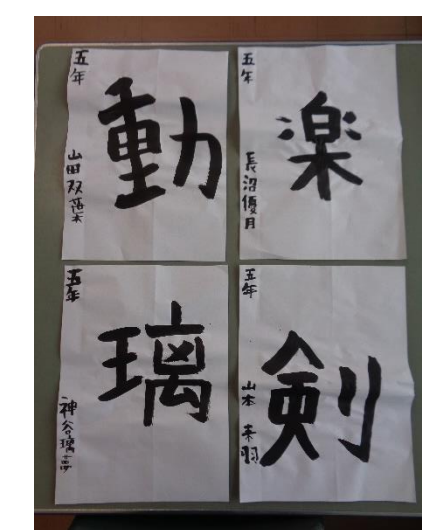 五年
動
山田双葉
五年
楽
長沼優月
五年
璃
神谷璃夢
五年
剣
山本来羽